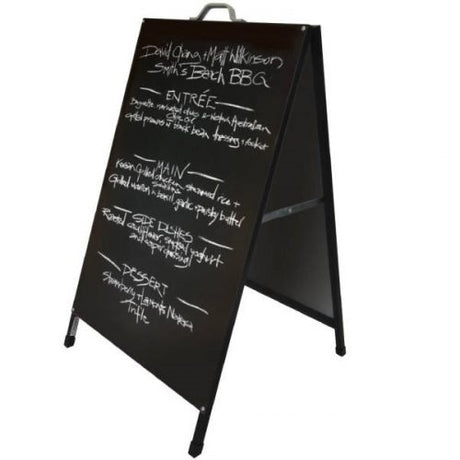 David Chang + Matt Wilkinson
Smith's Beach BBQ
ENTRÉE
Baguette marinated olives + Western Australian
Olive Oil
Grilled prawns w black bean dressing + rocket
MAIN
Grilled chicken steamed rice +
Grilled w basil, garlic parsley butter
SIDE DISHES
Roasted cauliflower, yoghurt
and caper
DESSERT
Strawberry +
Trifle